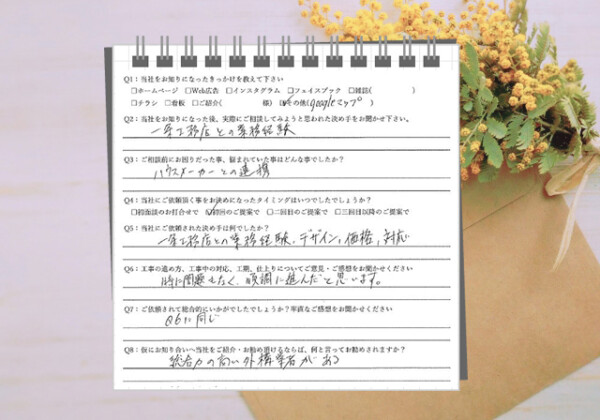 Q1：当社をお知りになったきっかけを教えて下さい
□ホームページ □Web広告 □インスタグラム □フェイスブック □雑誌( )
□チラシ □看板 □ご紹介( 様) ☑その他(googleマップ )
Q2：当社をお知りになった後、実際にご相談してみようと思われた決め手をお聞かせ下さい。
一条工務店との業務経験
Q3：ご相談前にお困りだった事、悩まれていた事はどんな事でしたか？
ハウスメーカーとの連携
Q4：当社にご依頼頂く事をお決めになったタイミングはいつでしたでしょうか？
□初面談のお打合せで ☑初回のご提案で □二回目のご提案で □三回目以降のご提案で
Q5：当社に依頼された決め手は何でしたか？
一条工務店との業務経験、デザイン、価格、対応
Q6：工事の進め方、工事中の対応、工期、仕上りについてご意見・ご感想をお聞かせください
特に問題もなく、順調に進んだと思います。
Q7：ご依頼されて総合的にいかがでしたでしょうか？率直なご感想をお聞かせください
Q6に同じ
Q8：仮にお知り合いへ当社をご紹介・お勧め頂けるならば、何と言ってお勧めされますか？
総合力の高い外構業者がある